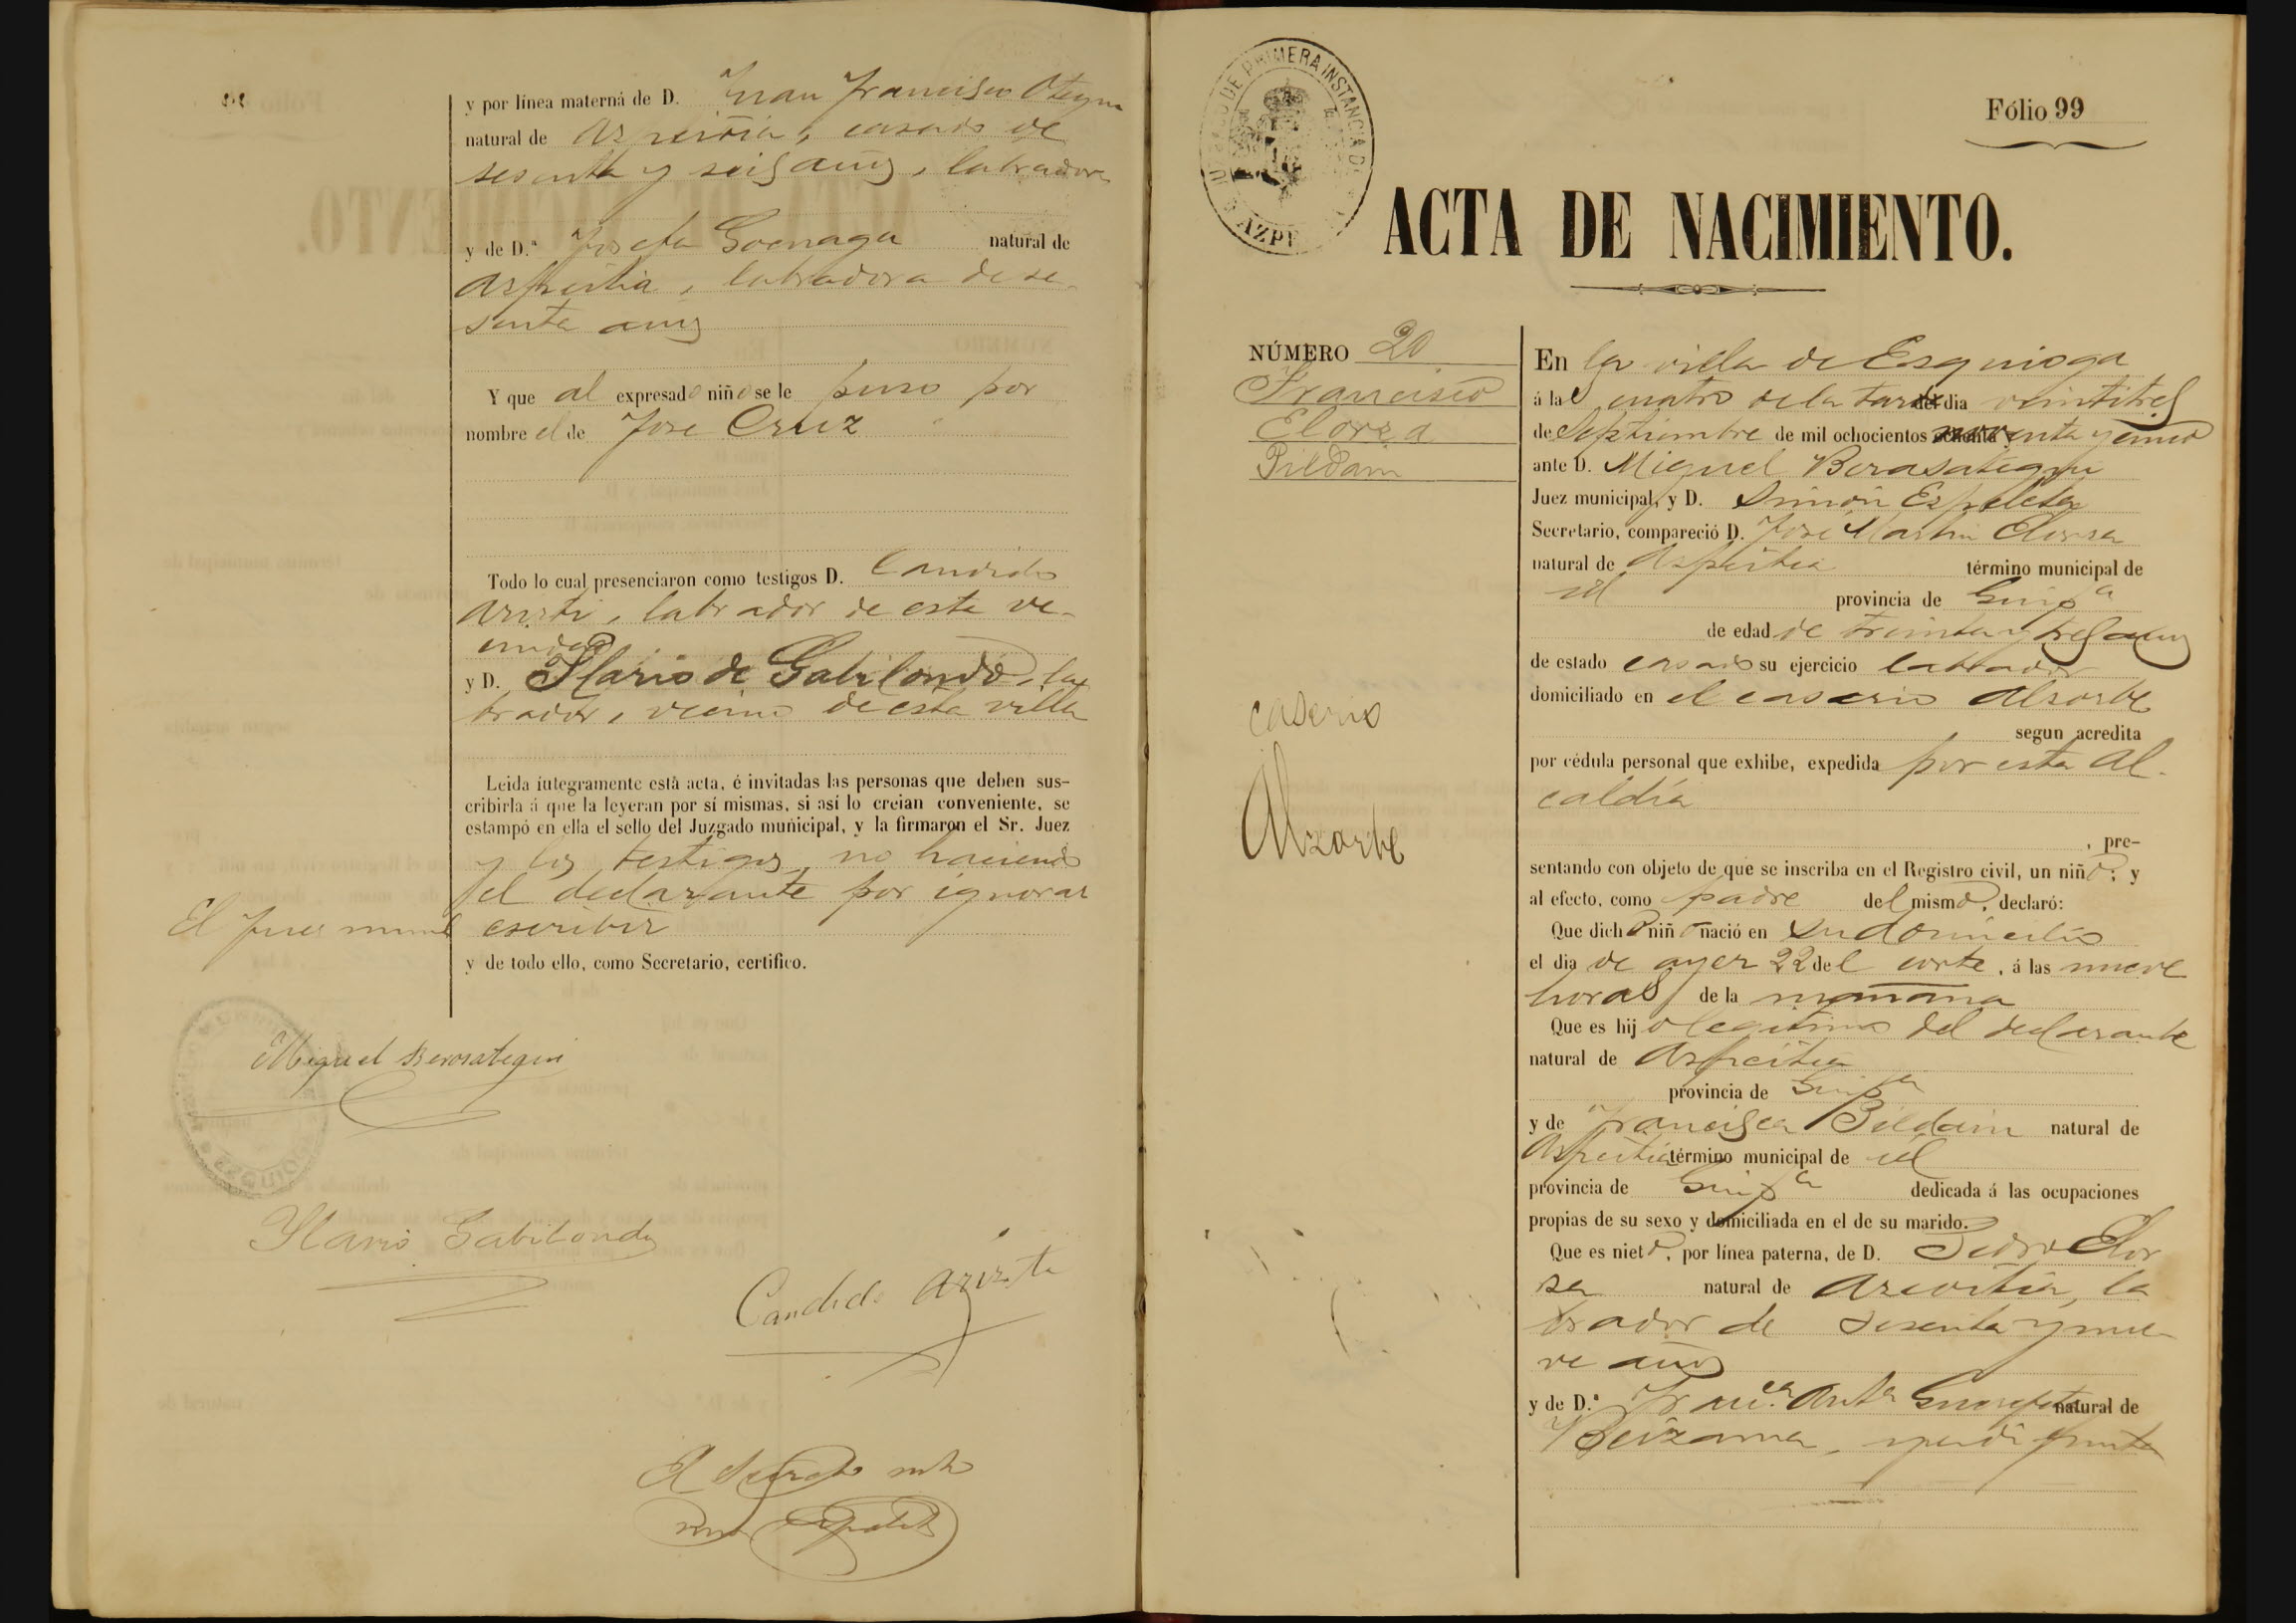 y por línea materna de D. Juan Francisco Otegui
natural de Azpeitia, casado de
sesenta y seis años, labrador
y de D.ª Josefa Goenaga natural de
Azpeitia, labradora de se-
senta años
Y que al expresado niño se le puso por
nombre el de Jose Cruz
Todo lo cual presenciaron como testigos D. Candido
Aristi, labrador de esta ve-
cindad
y D. Ylario de Gabilondo, la
brador, vecino de esta villa
Leida íntegramente está acta, é invitadas las personas que deben sus-
cribirla á que la leyeran por sí mismas, si así lo creian conveniente, se
estampó en ella el sello del Juzgado municipal, y la firmaron el Sr. Juez
y los testigos, no haciendo
el declarante por ignorar
El Juez munl escribir
y de todo ello, como Secretario, certifico.
Miguel Berasategui
Ylario Gabilondo
Candido Arizti
JUZGADO DE PRIMERA INSTANCIA DE AZPE
Fólio 99
ACTA DE NACIMIENTO.
NÚMERO 20
Francisco
Elorza
Bildain
caserio
Alzorbe
En la villa de Ezquioga
á las cuatro de la tarde del dia veintitres
de Septiembre de mil ochocientos ochenta noventa y cinco
ante D. Miguel Berasategui
Juez municipal, y D. Simón Ezpeleta
Secretario, compareció D. Jose Martin Elorza
natural de Azpeitia término municipal de
id provincia de Guipª
de edad de treinta y tres años
de estado casado su ejercicio labrador
domiciliado en el caserio Alzorbe
segun acredita
por cédula personal que exhibe, expedida por esta Al-
caldía
, pre-
sentando con objeto de que se inscriba en el Registro civil, un niño; y
al efecto, como padre del mismo, declaró:
Que dicho niño nació en su domicilio
el dia de ayer 22 del corte, á las nueve
horas de la mañana
Que es hijo legitimo del declarante
natural de Azpeitia
provincia de Guipª
y de Francisca Bildain natural de
Azpeitia término municipal de id
provincia de Guipª dedicada á las ocupaciones
propias de su sexo y domiciliada en el de su marido.
Que es nieto, por línea paterna, de D. Pedro Elor
za natural de Azcoitia, la
brador de sesenta y nue
ve años
y de D.ª Francª Antª natural de
Beizama,